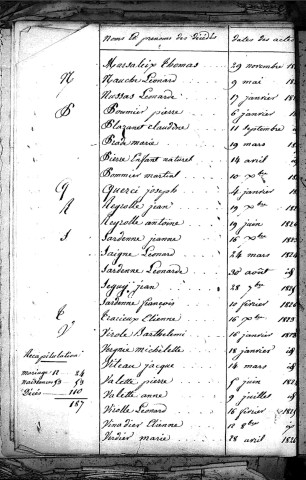 Noms et prenoms des Décédés Dates des actes
Massaleix thomas 29 novembre 18
N Nauche Léonard 9 mai 18
Nussas Léonarde 17 janvier 18
P Pommier pierre 6 janvier
Blazanet claudine 11 Septembre
Prade marie 19 mars 18
Pierre Enfant naturel 14 avril
Pommier martial 10 Xbre
Q Querci joseph 4 janvier
R Reyrolle jean 19 Xbre
Reyrolle antoine 19 juin 182
S Sardenne jeanne 16 Xbre
Saigne Léonard 24 mars 182
Sardenne Léonarde 30 août id
Seguy jean 28 7bre
Sardenne françois 10 février 182
T Tracieux Etienne 16 Xbre 1823
V Virole Barthelemi 16 janvier 182
Vergne michelette 18 janvier id
Viteau jacque 14 mars id
Valette pierre 5 juin
Valette anne 9 juillet id
Virolle Léonard 16 février
Vinadier Etienne 12 8bre
Verdier marie 28 avril 182
Récapitulation
mariage 11 24
naissances 53 53
Décès 110
187